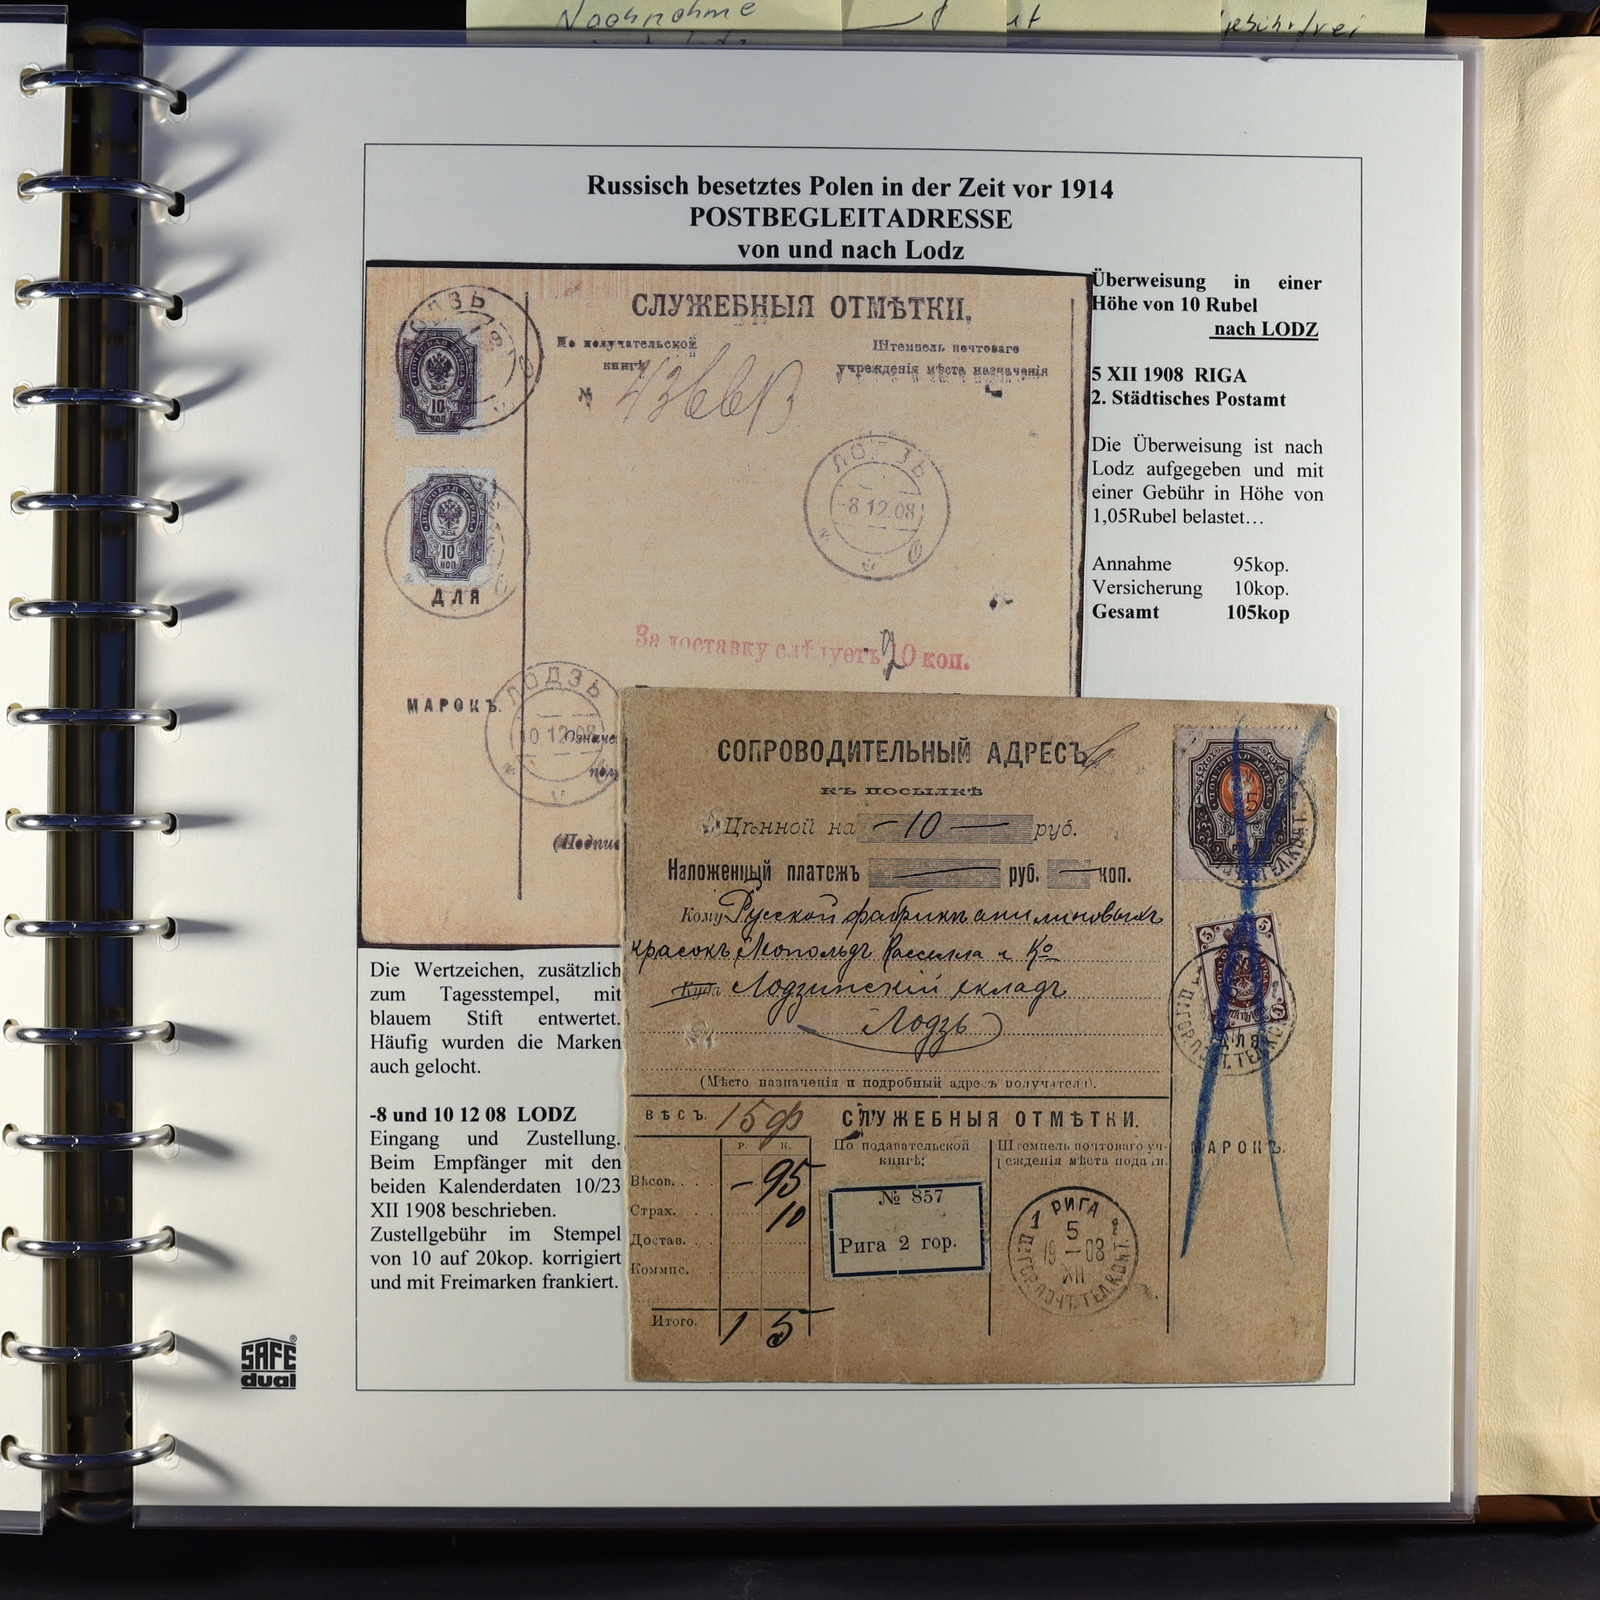 Nachnahme
gebührfrei
Russisch besetztes Polen in der Zeit vor 1914
POSTBEGLEITADRESSE
von und nach Lodz
Überweisung in einer
Höhe von 10 Rubel
nach LODZ
5 XII 1908 RIGA
2. Städtisches Postamt
Die Überweisung ist nach
Lodz aufgegeben und mit
einer Gebühr in Höhe von
1,05Rubel belastet…
Annahme 95kop.
Versicherung 10kop.
Gesamt 105kop
СЛУЖЕБНЫЯ ОТМѢТКИ.
По получательской
книгѣ
№
Штемпель почтоваго
учрежденія мѣста назначенія
ЛОДЗЬ
10
КОП
10
КОП
ДЛЯ
МАРОКЪ.
ЛОДЗЬ
-8 12 08
За доставку слѣдуетъ 20 коп.
ЛОДЗЬ
10 12 08
Означе
пол
(Подпис
Die Wertzeichen, zusätzlich
zum Tagesstempel, mit
blauem Stift entwertet.
Häufig wurden die Marken
auch gelocht.
-8 und 10 12 08 LODZ
Eingang und Zustellung.
Beim Empfänger mit den
beiden Kalenderdaten 10/23
XII 1908 beschrieben.
Zustellgebühr im Stempel
von 10 auf 20kop. korrigiert
und mit Freimarken frankiert.
СОПРОВОДИТЕЛЬНЫЙ АДРЕСЪ
КЪ ПОСЫЛКѢ
Цѣнной на —10— руб.
Наложенный платежъ — руб. — коп.
Кому Русской фабрики анилиновыхъ
красокъ Леопольдъ Касселла и Ко
Куда Лодзинскій складъ
Лодзь
(Мѣсто назначенія и подробный адресъ получателя).
ВѢСЪ. 15ф
СЛУЖЕБНЫЯ ОТМѢТКИ.
Р. К.
Вѣсов. – 95
Страх. 10
Достав.
Коммис.
Итого. 1 5
По подавательской
книгѣ:
№ 857
Рига 2 гор.
Штемпель почтоваго уч-
режденія мѣста подачи.
РИГА
5
19 – 08
XII
ДЛЯ
МАРОКЪ.
SAFE
dual